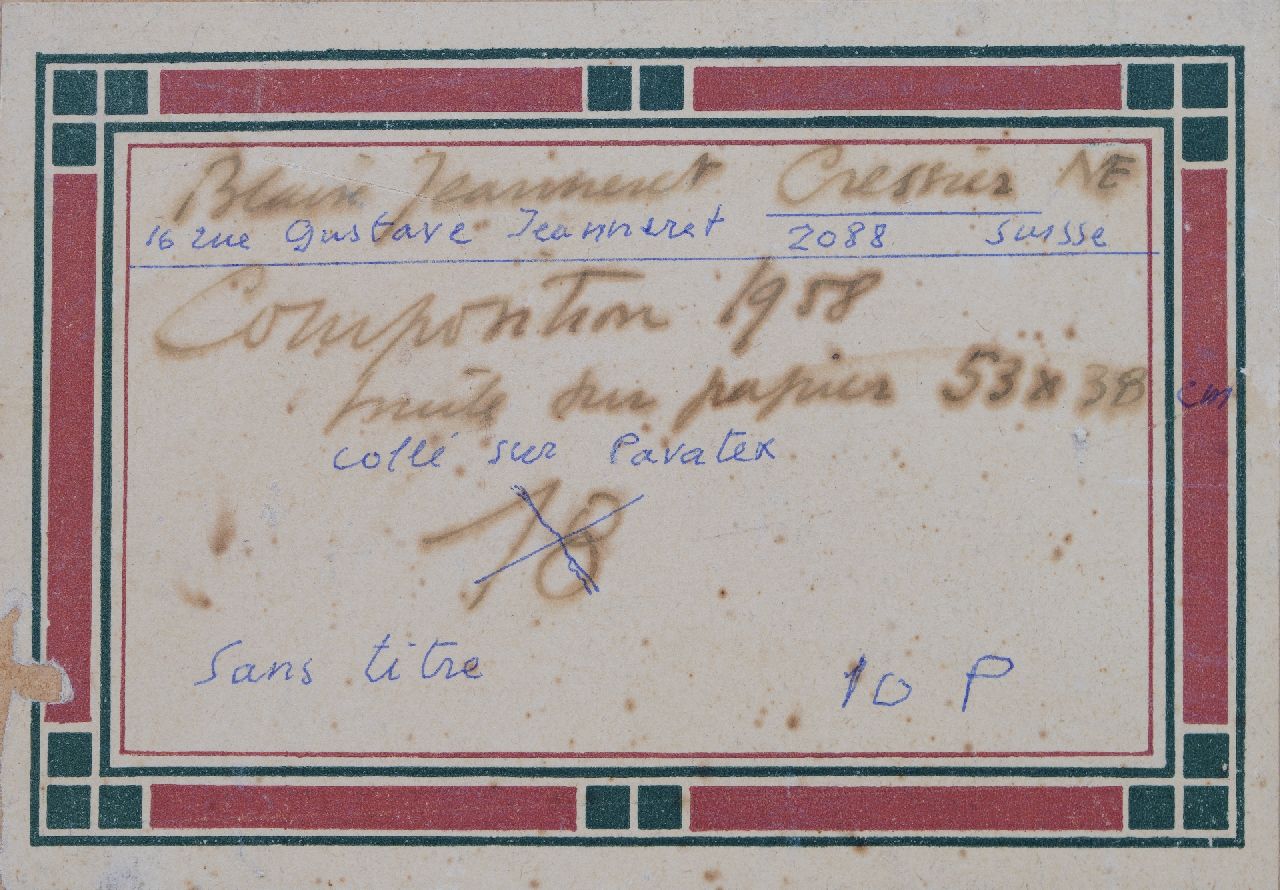 Blaise Jeanneret Cressier NE
16 rue Gustave Jeanneret 2088 Suisse
Composition 1958
sur papier 53 x 38 cm
collé sur Pavatex
18
Sans titre 10 P